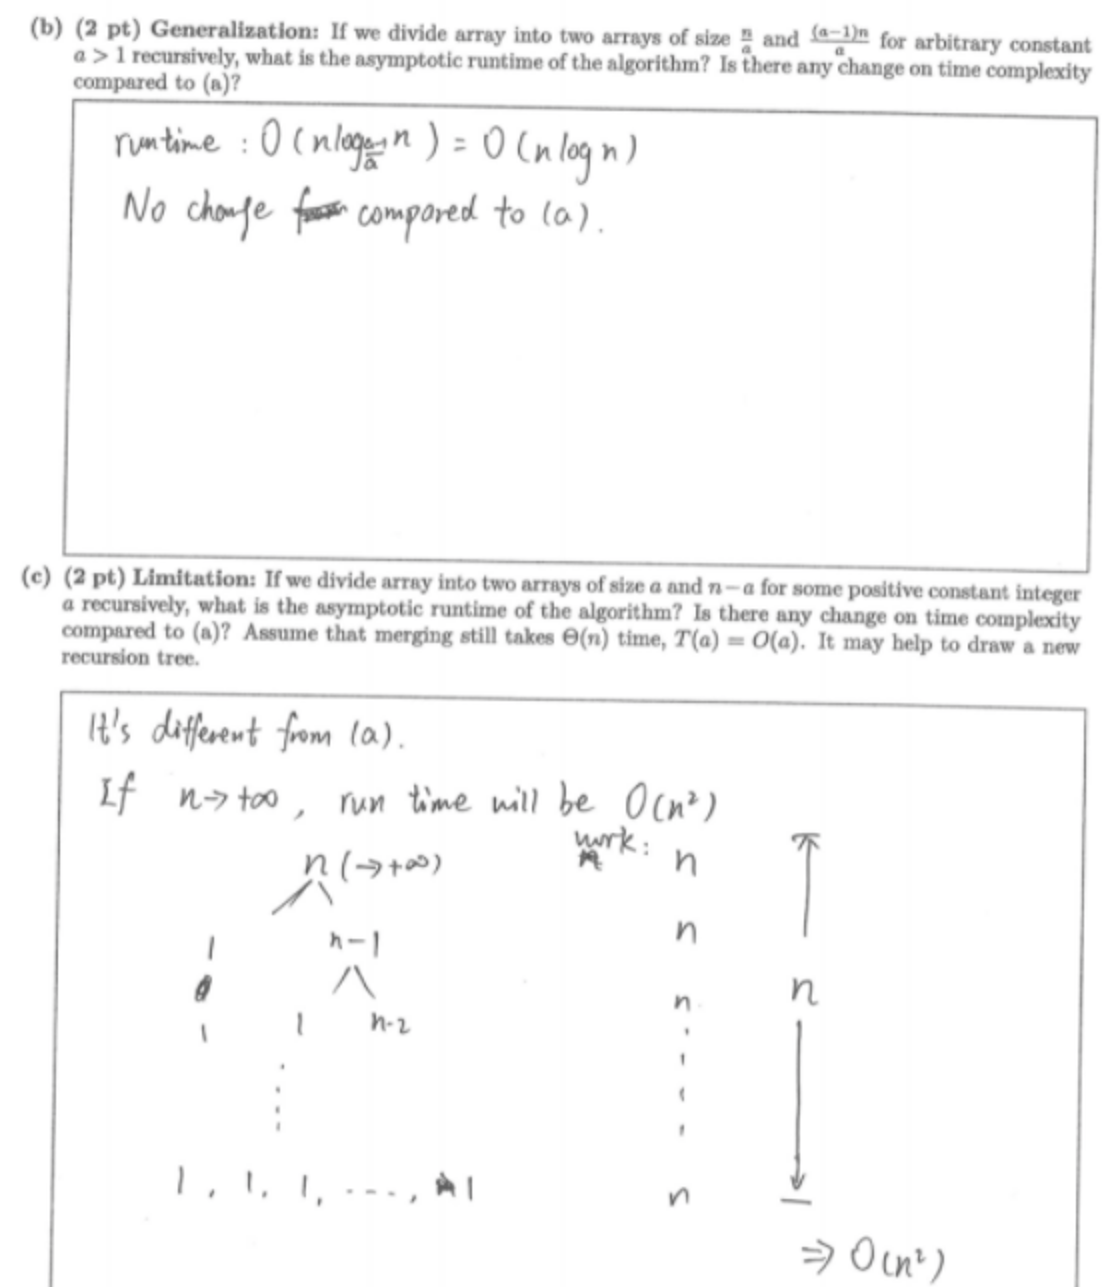 (b) (2 pt) Generalization: If we divide array into two arrays of size n/a and (a−1)n/a for arbitrary constant
a > 1 recursively, what is the asymptotic runtime of the algorithm? Is there any change on time complexity
compared to (a)?
runtime : O(nlog n) = O(n log n)
No change compared to (a).
(c) (2 pt) Limitation: If we divide array into two arrays of size a and n−a for some positive constant integer
a recursively, what is the asymptotic runtime of the algorithm? Is there any change on time complexity
compared to (a)? Assume that merging still takes Θ(n) time, T(a) = O(a). It may help to draw a new
recursion tree.
It's different from (a).
If n→+∞, run time will be O(n²)
work:
n(→+∞) n
1 n−1 n
n n
1 1 n-2
1, 1, 1, ----, 1 n
⇒ O(n²)